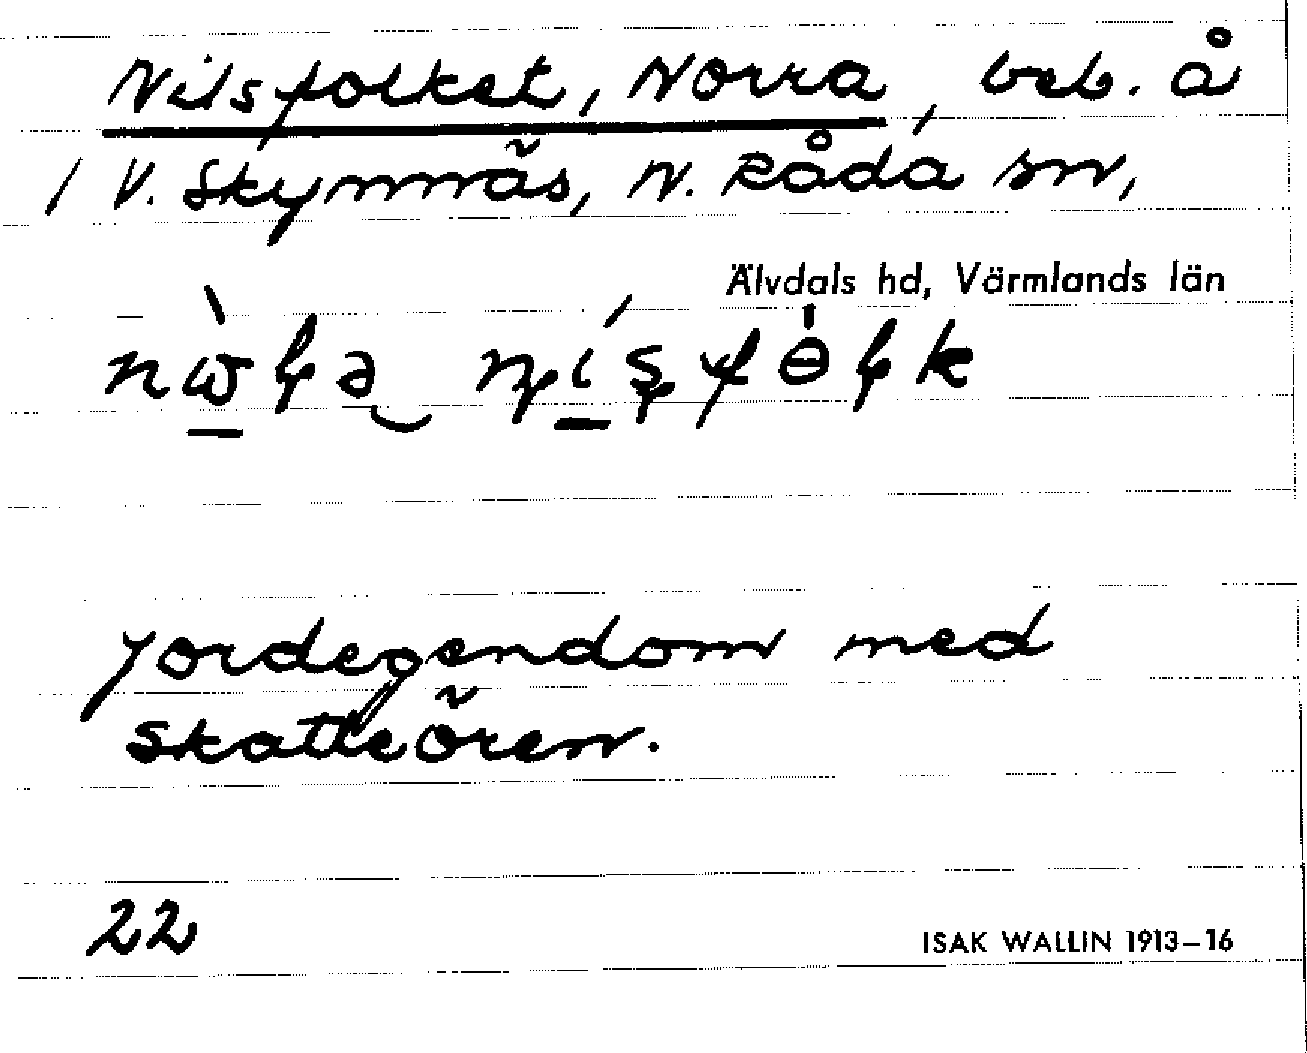 Nilsfolket, Norra, beb. å
1 V. Skymnäs, N. Råda sn,
Älvdals hd, Värmlands län
Jordegendom med
skatteören.
22
ISAK WALLIN 1913–16